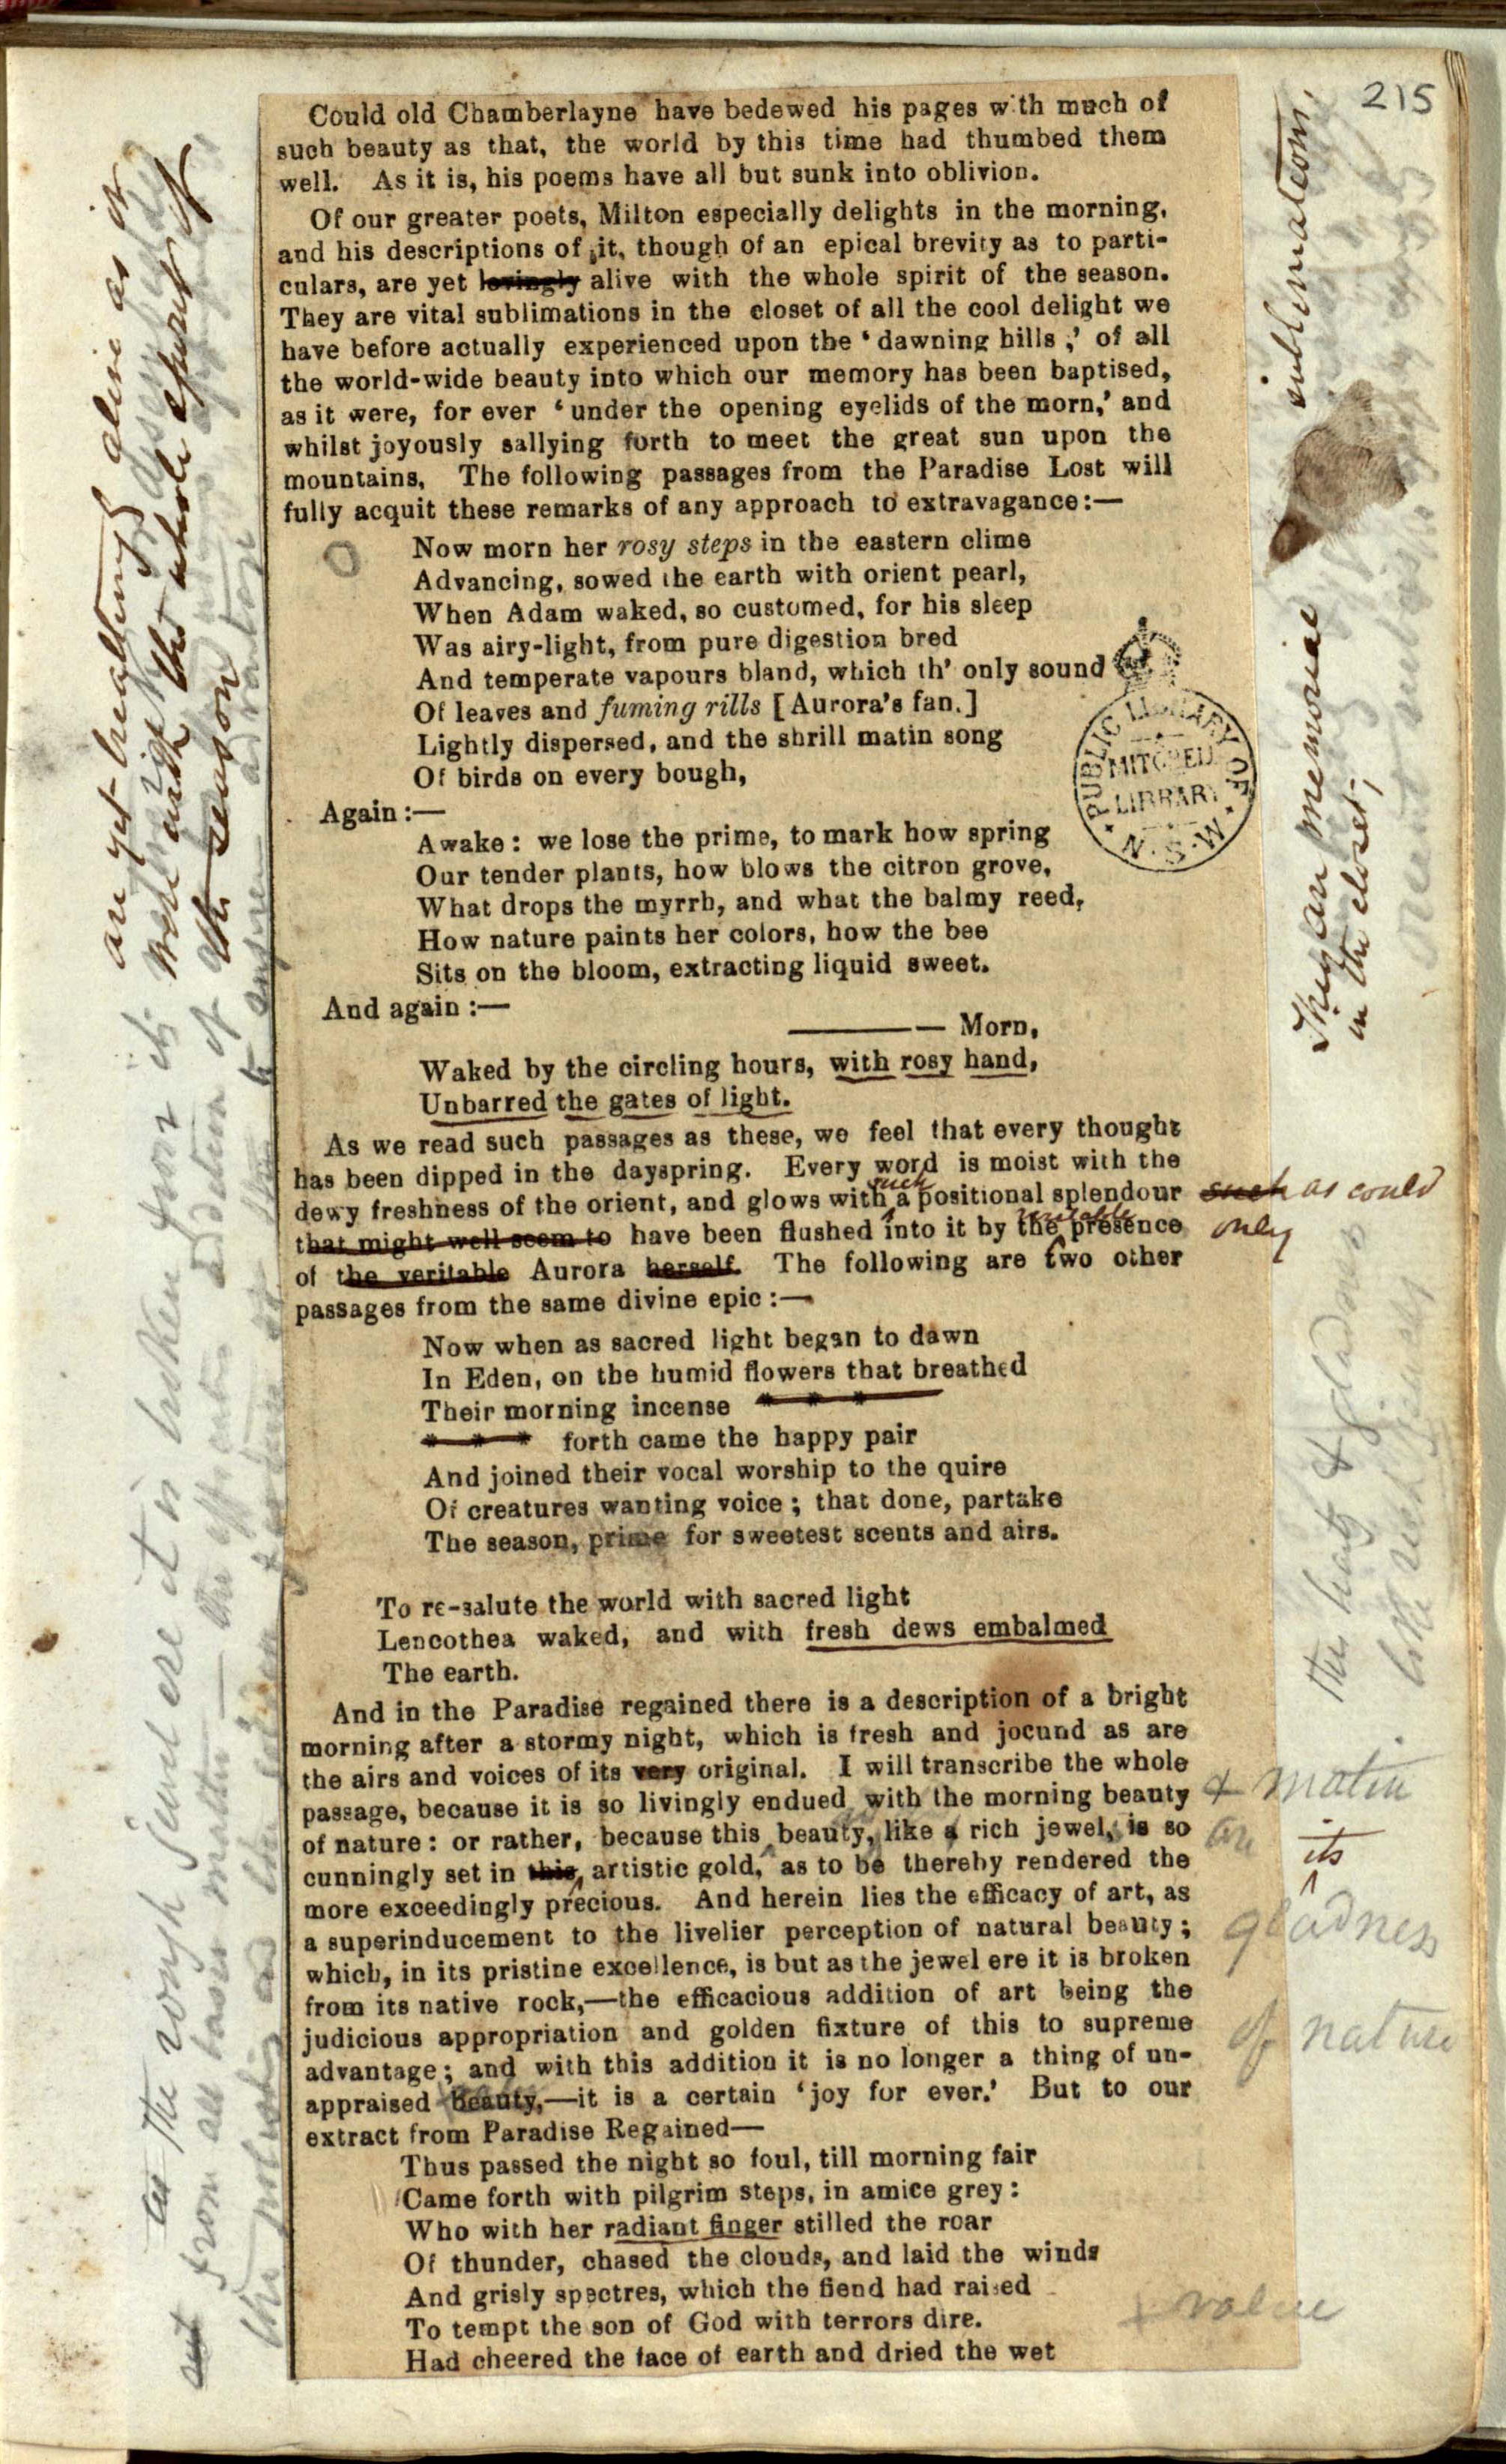 215
Could old Chamberlayne have bedewed his pages with much of
such beauty as that, the world by this time had thumbed them
well. As it is, his poems have all but sunk into oblivion.
Of our greater poets, Milton especially delights in the morning,
and his descriptions of it, though of an epical brevity as to parti-
culars, are yet lovingly alive with the whole spirit of the season.
They are vital sublimations in the closet of all the cool delight we
have before actually experienced upon the ‘dawning hills;’ of all
the world-wide beauty into which our memory has been baptised,
as it were, for ever ‘under the opening eyelids of the morn,’ and
whilst joyously sallying forth to meet the great sun upon the
mountains. The following passages from the Paradise Lost will
fully acquit these remarks of any approach to extravagance:—
Now morn her rosy steps in the eastern clime
Advancing, sowed the earth with orient pearl,
When Adam waked, so customed, for his sleep
Was airy-light, from pure digestion bred
And temperate vapours bland, which th’ only sound
Of leaves and fuming rills [Aurora’s fan.]
Lightly dispersed, and the shrill matin song
Of birds on every bough,
Again:—
Awake: we lose the prime, to mark how spring
Our tender plants, how blows the citron grove,
What drops the myrrh, and what the balmy reed,
How nature paints her colors, how the bee
Sits on the bloom, extracting liquid sweet.
And again:—
——— Morn,
Waked by the circling hours, with rosy hand,
Unbarred the gates of light.
As we read such passages as these, we feel that every thought
has been dipped in the dayspring. Every word is moist with the
such
dewy freshness of the orient, and glows with a positional splendour such as could
veritable
that might well seem to have been flushed into it by the presence only
of the veritable Aurora herself. The following are two other
passages from the same divine epic:—
Now when as sacred light began to dawn
In Eden, on the humid flowers that breathed
Their morning incense * * *
* * * forth came the happy pair
And joined their vocal worship to the quire
Of creatures wanting voice; that done, partake
The season, prime for sweetest scents and airs.
To re-salute the world with sacred light
Lencothea waked, and with fresh dews embalmed
The earth.
And in the Paradise regained there is a description of a bright
morning after a stormy night, which is fresh and jocund as are
the airs and voices of its very original. I will transcribe the whole
passage, because it is so livingly endued with the morning beauty + matin
of nature: or rather, because this beauty, like a rich jewel, is so are its
cunningly set in this artistic gold, as to be thereby rendered the
more exceedingly precious. And herein lies the efficacy of art, as
a superinducement to the livelier perception of natural beauty; gladness
which, in its pristine excellence, is but as the jewel ere it is broken
from its native rock,—the efficacious addition of art being the
judicious appropriation and golden fixture of this to supreme of nature
advantage; and with this addition it is no longer a thing of un-
appraised beauty,—it is a certain ‘joy for ever.’ But to our
extract from Paradise Regained—
Thus passed the night so foul, till morning fair
Came forth with pilgrim steps, in amice grey:
Who with her radiant finger stilled the roar
Of thunder, chased the clouds, and laid the winds
And grisly spectres, which the fiend had raised
To tempt the son of God with terrors dire. + value
Had cheered the face of earth and dried the wet
PUBLIC LIBRARY OF
MITCHELL
LIBRARY
N.S.W
are yet breathingly alive as it
were with the whole spirit of
the season
They are memorial sublimations,
in the closet;
the beauty & gladness
like rich jewels
as the rough jewel ere it is broken from its
from all baser matter
the polishing and the